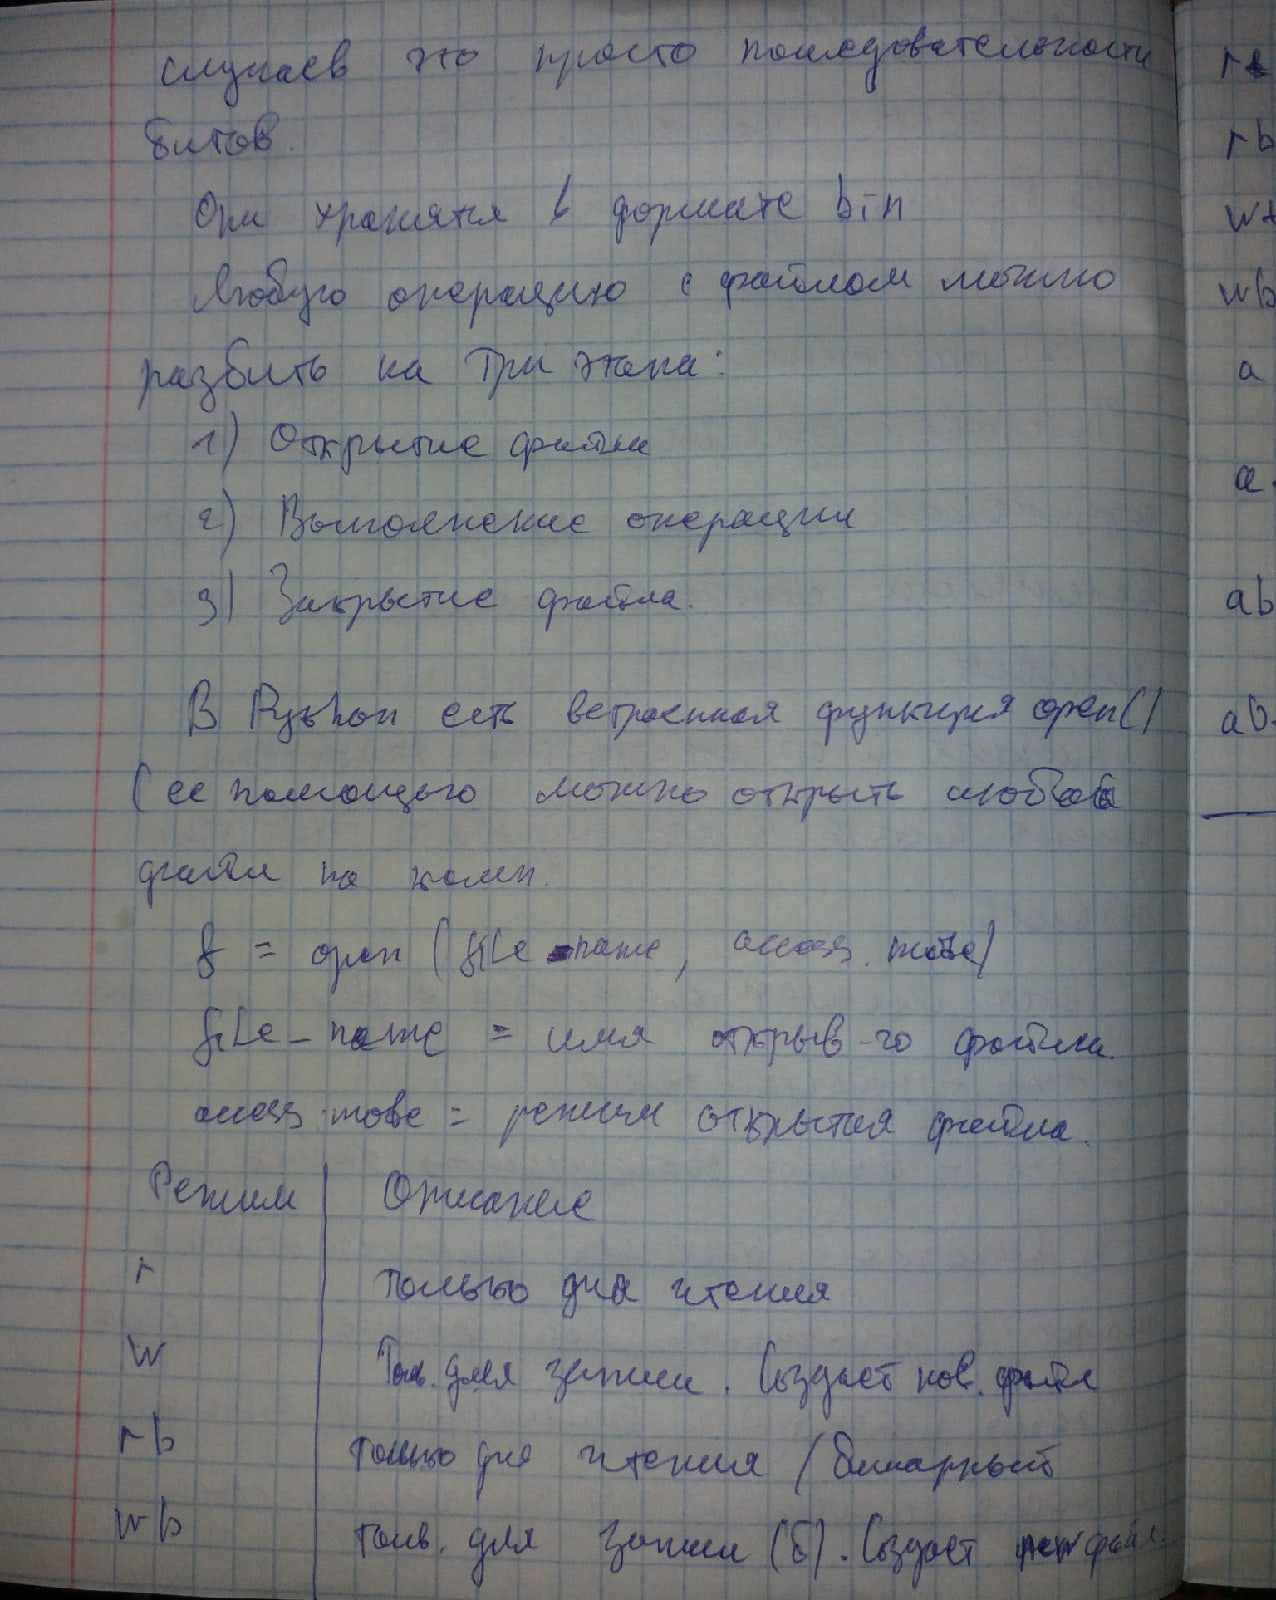 случаев это просто последовательности
битов.
Они хранятся в формате bin
Любую операцию с файлом можно
разбить на три этапа:
1) Открытие файла
2) Выполнение операции
3) Закрытие файла.
В Python есть встроенная функция open()
С ее помощью можно открыть любой
файл на комп.
f = open (file_name, access_mode)
file_name = имя открыв-го файла.
access_mode = режим открытия файла.
Режим | Описание
r только для чтения
w Тол. для записи. Создает нов. файл
rb только для чтения (бинарный
wb толь. для записи (б). Создает файл.
rb
w+
wb
a
a
ab
ab